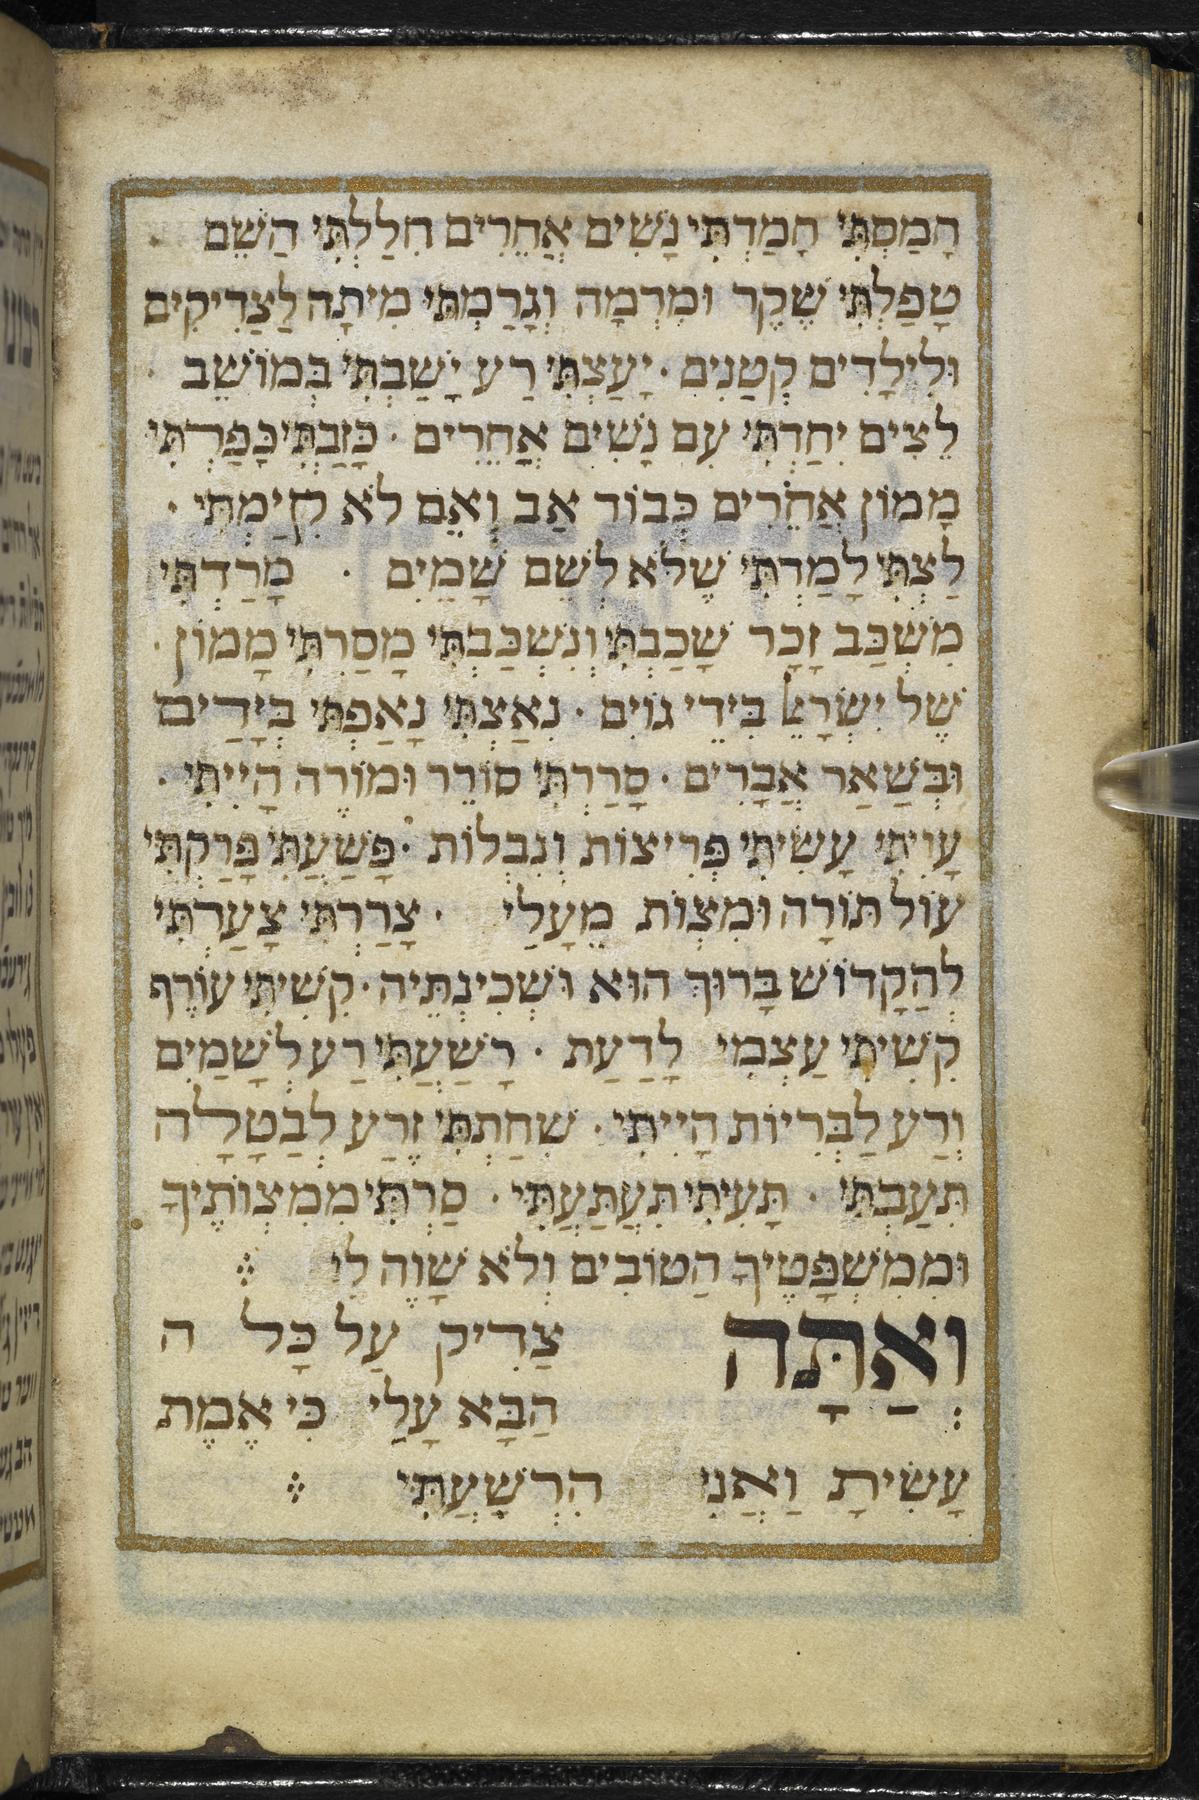 חָמַסְתִּי חָמַדְתִּי נָשִׁים אֲחֵרִים חִלַלְתִּי הַשֵׁם
טָפַלְתִּי שֶׁקֶר וּמִרְמָה וְגָרַמְתִּי מִיתָה לַצַדִיקִים
וּלִילָדִים קְטַנִים · יָעַצְתִּי רַע יָשַׁבְתִּי בְּמוֹשַׁב
לֵצִים יִחַדְתִּי עִם נָשִׁים אֲחֵרִים · כָּזַבְתִּי כָּפַרְתִּי
מָמוֹן אֲחֵרִים כְּבוֹד אַב וָאֵם לֹא קִיַמְתִּי ·
לַצְתִּי לָמַדְתִּי שֶׁלֹא לְשֵׁם שָׁמַיִם · מָרַדְתִּי
מִשְׁכַּב זָכָר שָׁכַבְתִּי וְנִשְׁכַּבְתִּי מָסַרְתִּי מָמוֹן ·
שֶׁל יִשְׂרָאֵל בִּידֵי גוֹיִם · נִאַצְתִּי נָאַפְתִּי בְּיָדַיִם
וּבִשְׁאַר אֲבָרִים · סָרַרְתִּי סוֹרֵר וּמוֹרֶה הָיִיתִי ·
עָוִיתִי עָשִׂיתִי פְּרִיצוֹת וְנִבְלוֹת · פָּשַׁעְתִּי פָּרַקְתִּי
עוֹל תּוֹרָה וּמִצְוֹת מֵעָלַי · צָרַרְתִּי צָעַרְתִּי
לְהַקָדוֹשׁ בָּרוּךְ הוּא וּשְׁכִינְתֵּיהּ · קִשִׁיתִי עוֹרֶף
קִשִׁיתִי עַצְמִי לָדַעַת · רָשַׁעְתִּי רַע לְשָׁמַיִם
וְרַע לַבְּרִיוֹת הָיִיתִי · שִׁחַתְתִּי זֶרַע לְבַטָלָה
תִּעַבְתִּי · תָּעִיתִי תִּעֲתַעֲתִּי · סַרְתִּי מִמִצְוֹתֶיךָ
וּמִמִשְׁפָּטֶיךָ הַטוֹבִים וְלֹא שָׁוֶה לִי
וְאַתָּה צַדִיק עַל כָּל ה
הַבָּא עָלַי כִּי אֶמֶת
עָשִׂיתָ וַאֲנִי הִרְשָׁעְתִּי